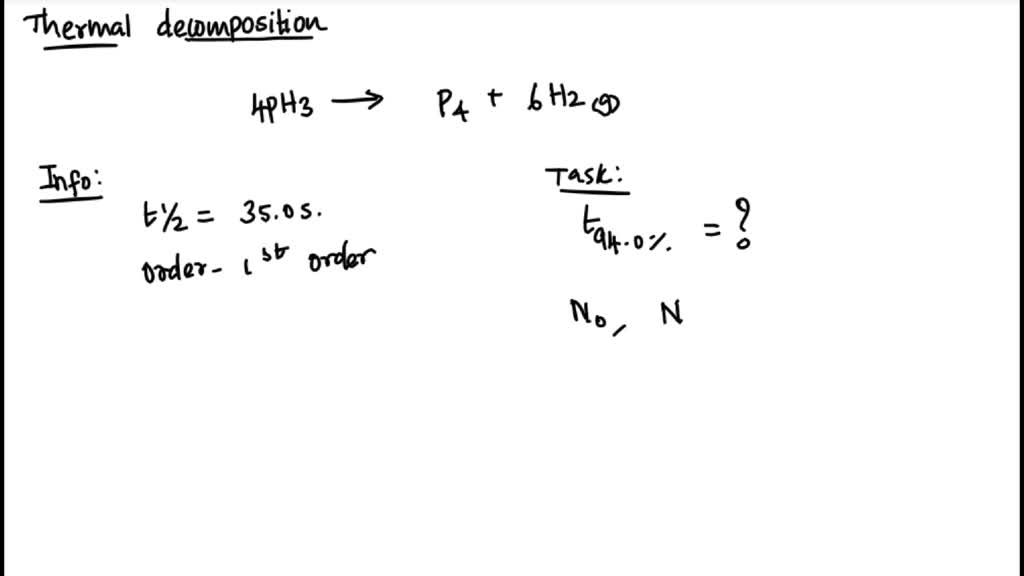 Thermal decomposition
4PH3 → P4 + 6H2(g)
Info:
t1/2 = 35.0s.
order - 1st order
Task:
t94.0% = ?
No, N